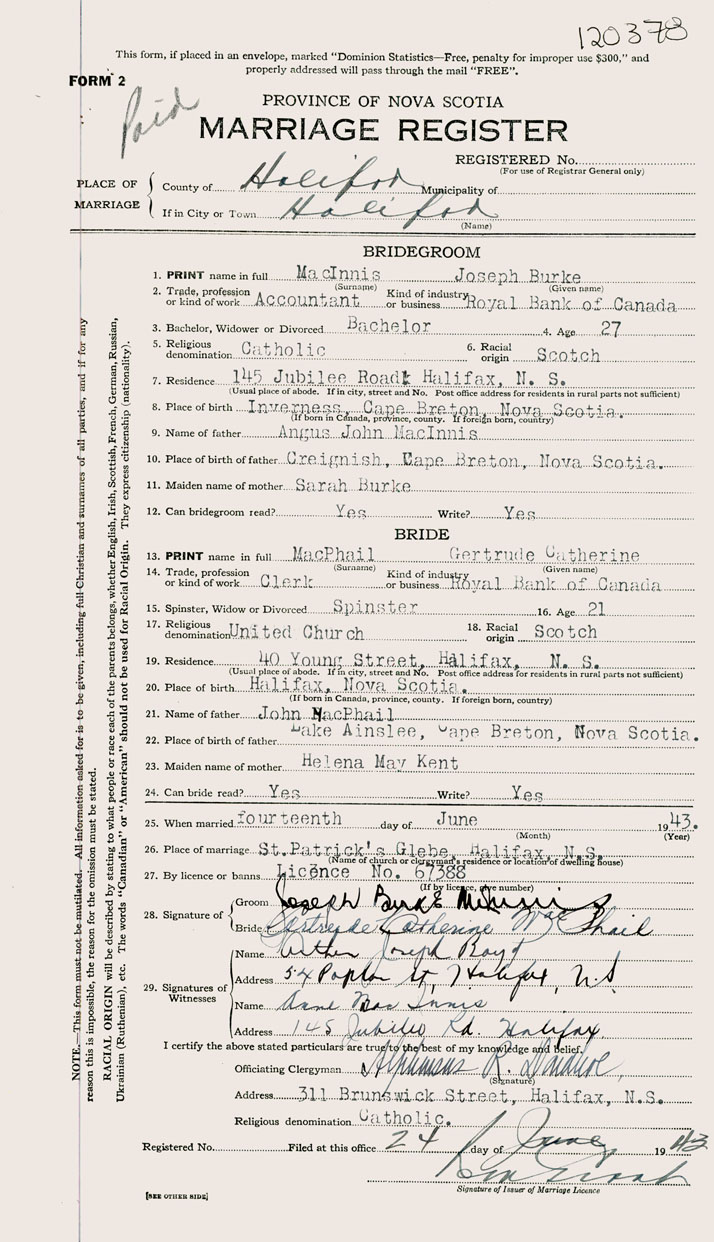 120378
This form, if placed in an envelope, marked "Dominion Statistics—Free, penalty for improper use $300," and
properly addressed will pass through the mail "FREE".
FORM 2
Paid
PROVINCE OF NOVA SCOTIA
MARRIAGE REGISTER
REGISTERED No.
(For use of Registrar General only)
PLACE OF MARRIAGE
County of Halifax Municipality of
If in City or Town Halifax
(Name)
BRIDEGROOM
1. PRINT name in full MacInnis Joseph Burke
(Surname) (Given name)
2. Trade, profession or kind of work Accountant Kind of industry or business Royal Bank of Canada
3. Bachelor, Widower or Divorced Bachelor 4. Age 27
5. Religious denomination Catholic 6. Racial origin Scotch
7. Residence 145 Jubilee Road, Halifax, N. S.
(Usual place of abode. If in city, street and No. Post office address for residents in rural parts not sufficient)
8. Place of birth Inverness, Cape Breton, Nova Scotia.
(If born in Canada, province, county. If foreign born, country)
9. Name of father Angus John MacInnis
10. Place of birth of father Creignish, Cape Breton, Nova Scotia.
11. Maiden name of mother Sarah Burke
12. Can bridegroom read? Yes Write? Yes
BRIDE
13. PRINT name in full MacPhail Gertrude Catherine
(Surname) (Given name)
14. Trade, profession or kind of work Clerk Kind of industry or business Royal Bank of Canada
15. Spinster, Widow or Divorced Spinster 16. Age 21
17. Religious denomination United Church 18. Racial origin Scotch
19. Residence 40 Young Street, Halifax, N. S.
(Usual place of abode. If in city, street and No. Post office address for residents in rural parts not sufficient)
20. Place of birth Halifax, Nova Scotia.
(If born in Canada, province, county. If foreign born, country)
21. Name of father John MacPhail
22. Place of birth of father Lake Ainslee, Cape Breton, Nova Scotia.
23. Maiden name of mother Helena May Kent
24. Can bride read? Yes Write? Yes
25. When married fourteenth day of June 1943.
(Month) (Year)
26. Place of marriage St.Patrick's Glebe, Halifax, N.S.
(Name of church or clergyman's residence or location of dwelling house)
27. By licence or banns Licence No. 67388
(If by licence, give number)
28. Signature of
Groom Joseph Burke McInnis
Bride Gertrude Catherine MacPhail
29. Signatures of Witnesses
Name Arthur Joseph Boyd
Address 54 Poplar St, Halifax, N.S
Name Anne MacInnis
Address 145 Jubilee Rd. Halifax
I certify the above stated particulars are true to the best of my knowledge and belief.
Officiating Clergyman Alphonsus R. Donahoe,
(Signature)
Address 311 Brunswick Street, Halifax, N.S.
Religious denomination Catholic.
Registered No. Filed at this office 24 day of June 1943
Signature of Issuer of Marriage Licence
[SEE OTHER SIDE]
NOTE.—This form must not be mutilated. All information asked for is to be given, including full Christian and surnames of all parties, and if for any
reason this is impossible, the reason for the omission must be stated.
RACIAL ORIGIN will be described by stating to what people or race each of the parents belongs, whether English, Irish, Scottish, French, German, Russian,
Ukrainian (Ruthenian), etc. The words "Canadian" or "American" should not be used for Racial Origin. They express citizenship (nationality).